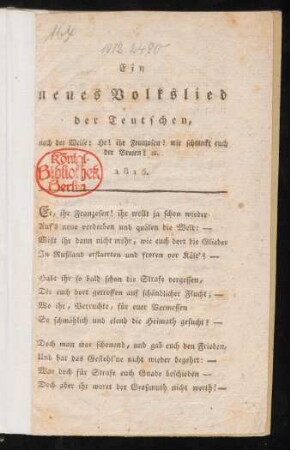 1812 2480
Ein
neues Volkslied
der Teutschen,
nach der Weise: He! ihr Franzosen! wie schmeckt euch
der Braten? ꝛc.
Königl.
Bibliothek
Berlin
1815.
Ei, ihr Franzosen! ihr wollt ja schon wieder
Auf's neue verderben und quälen die Welt: —
Wißt ihr dann nicht mehr, wie euch dort die Glieder
In Rußland erstarrten und froren vor Kält'? —
Habt ihr so bald schon die Strafe vergessen,
Die euch dort getroffen auf schändlicher Flucht; —
Wo ihr, Verruchte, für euer Vermessen
So schmählich und elend die Heimath gesucht? —
Doch man war schonend, und gab euch den Frieden,
Und hat das Gestohl'ne nicht wieder begehrt: —
War doch für Strafe euch Gnade beschieden —
Doch aber ihr waret der Großmuth nicht werth! —